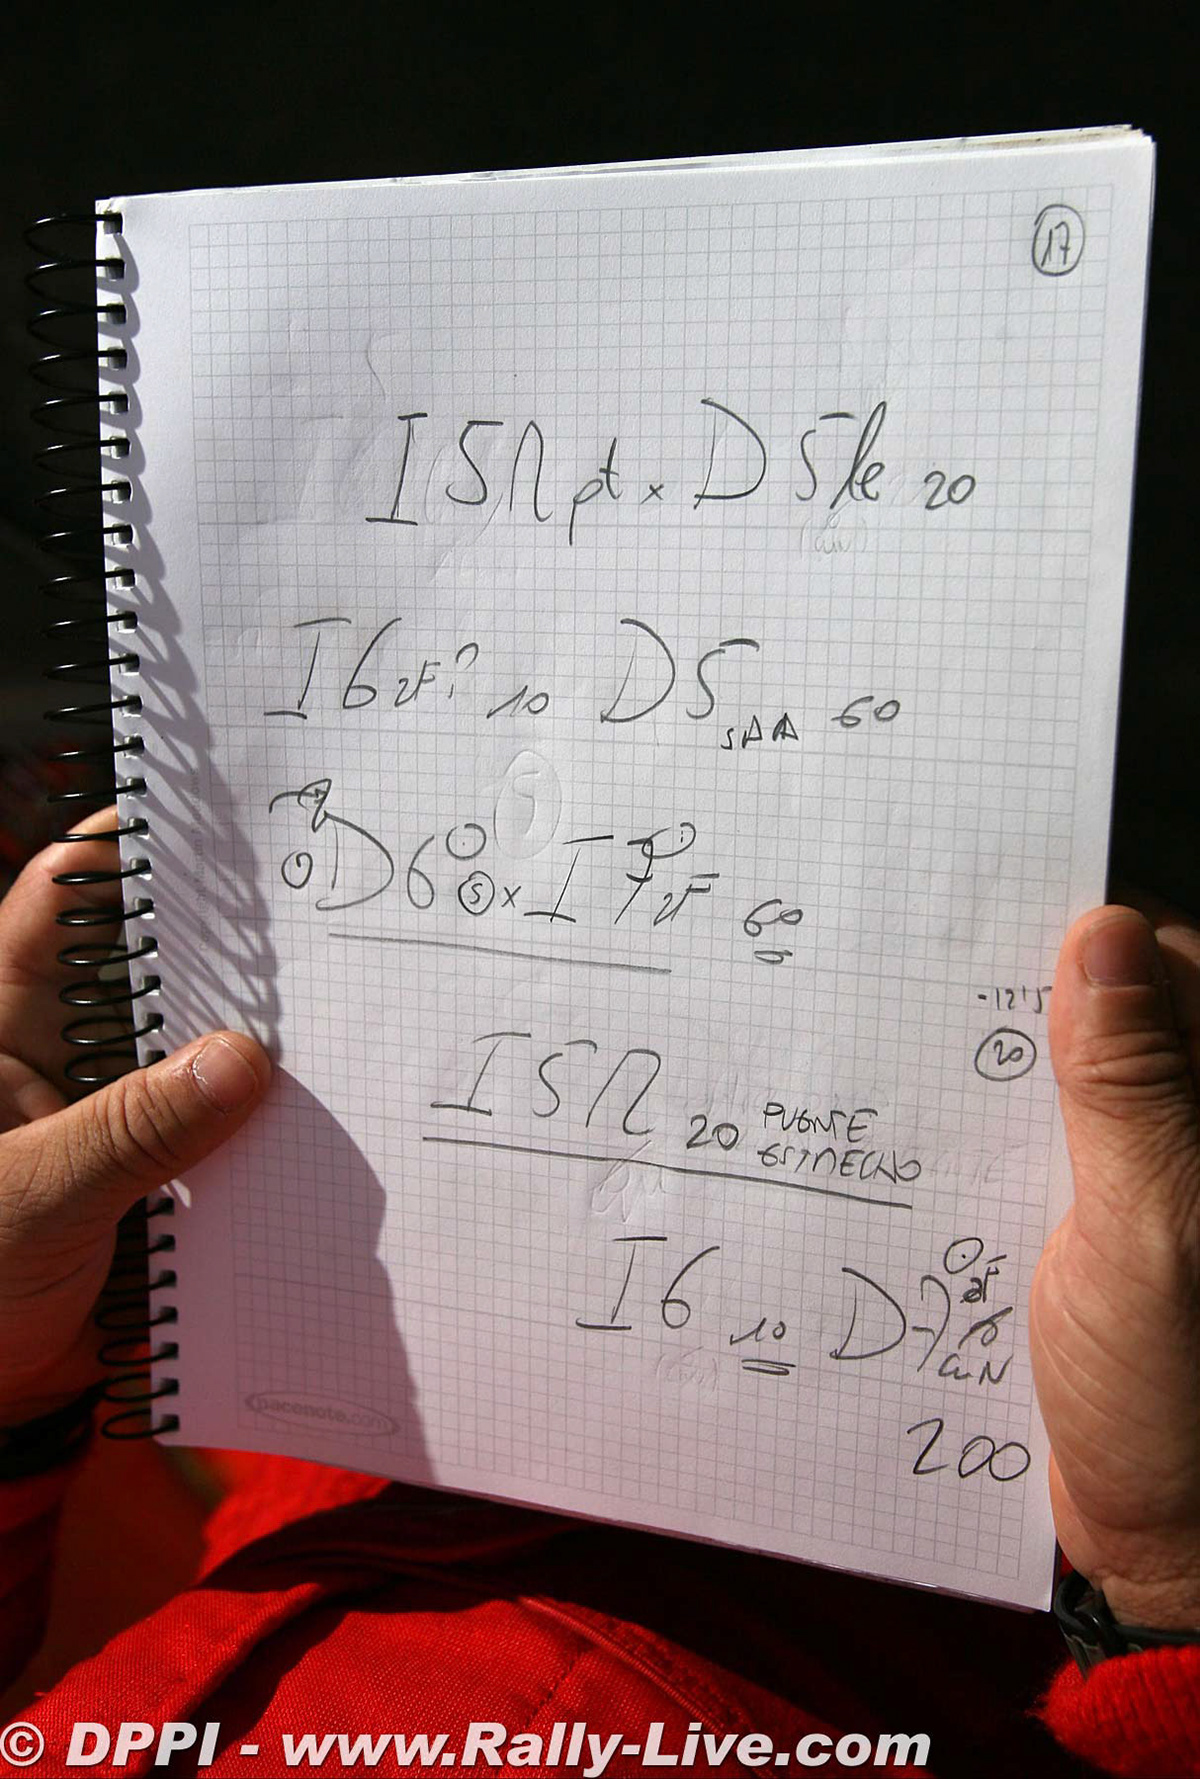 17
I 5 pt x D 5 le 20
I 6 2F? 10 D 5 SAA 60
D 6 S x I 7 2F 60
-12'5
20
I 5 20 PUENTE
ESTRECHO
I 6 10 D 7 2F
200
pacenote.com
© DPPI - www.Rally-Live.com